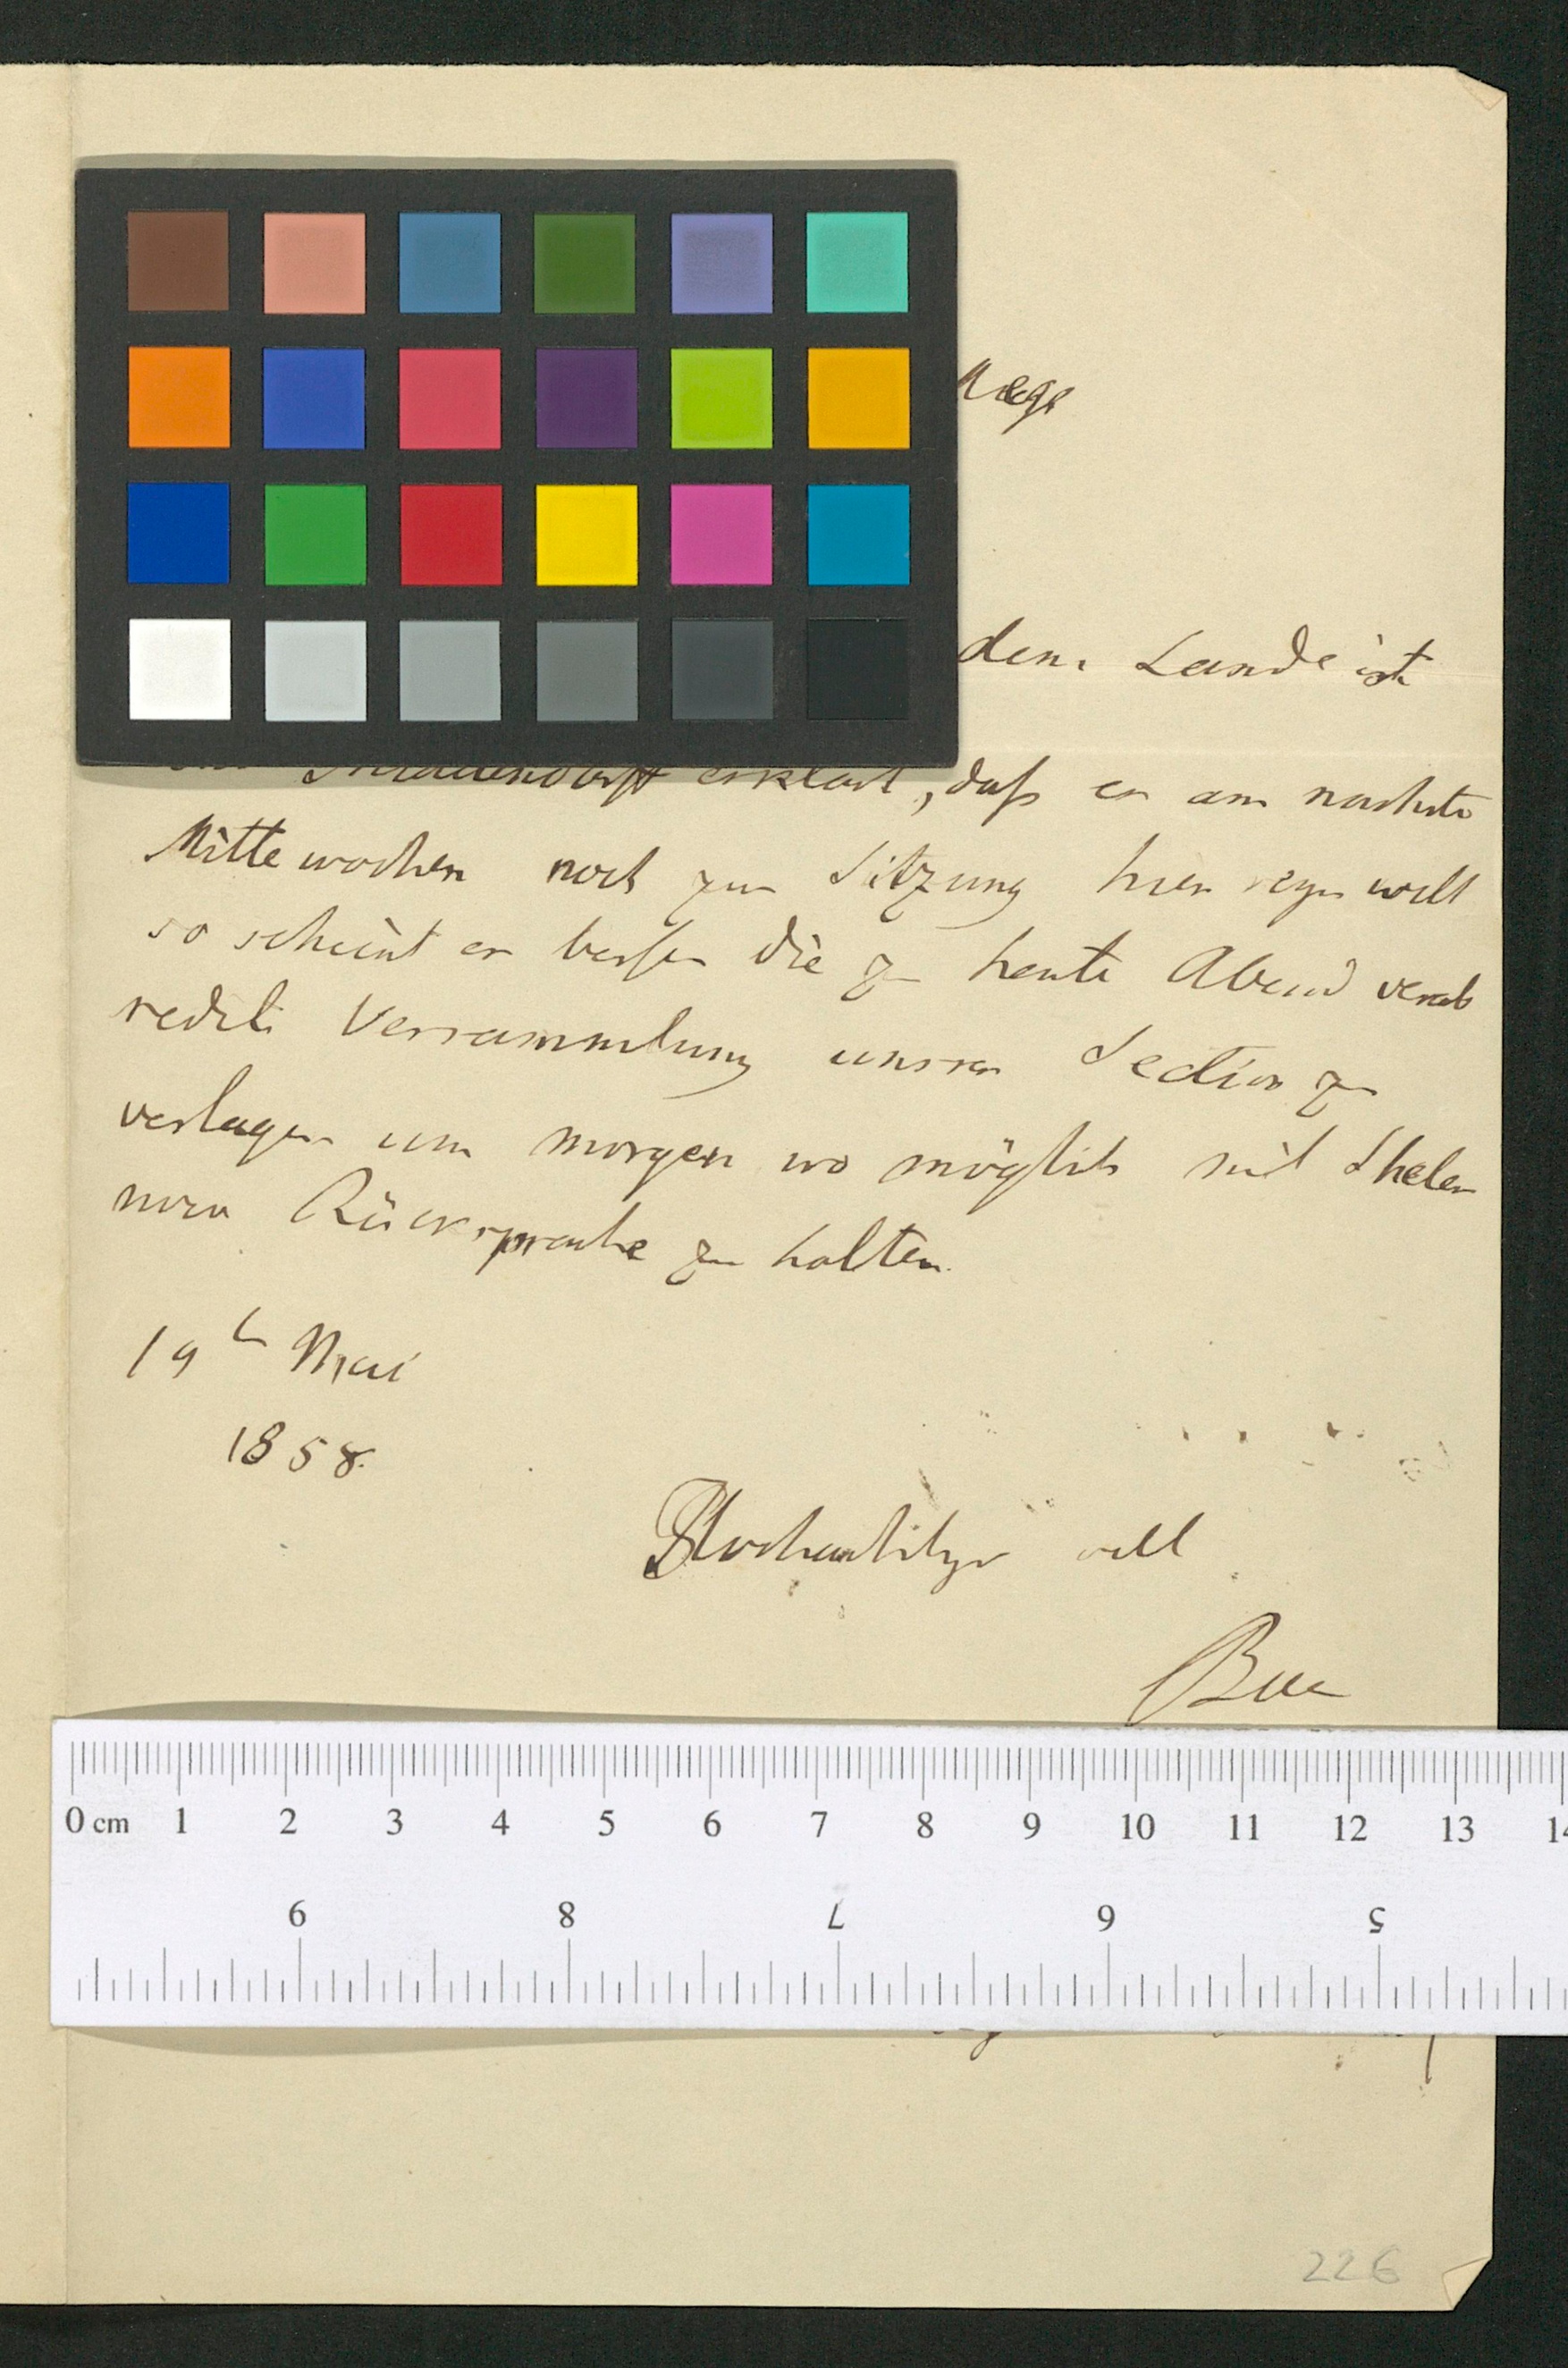 dem Lande ist
Middendorff erklärt, daß er am nächste
Mittewochen noch zur Sitzung hier seyn will
so scheint es besser die zu heute Abend verab
redete Versammlung unsrer Section zu
vertagen um morgen wo möglich mit Scheles
now Rücksprache zu halten.
19t Mai
1858.
Hochachtungsvoll
Baer
0 cm 1 2 3 4 5 6 7 8 9 10 11 12 13 14
9 8 7 6 5
226